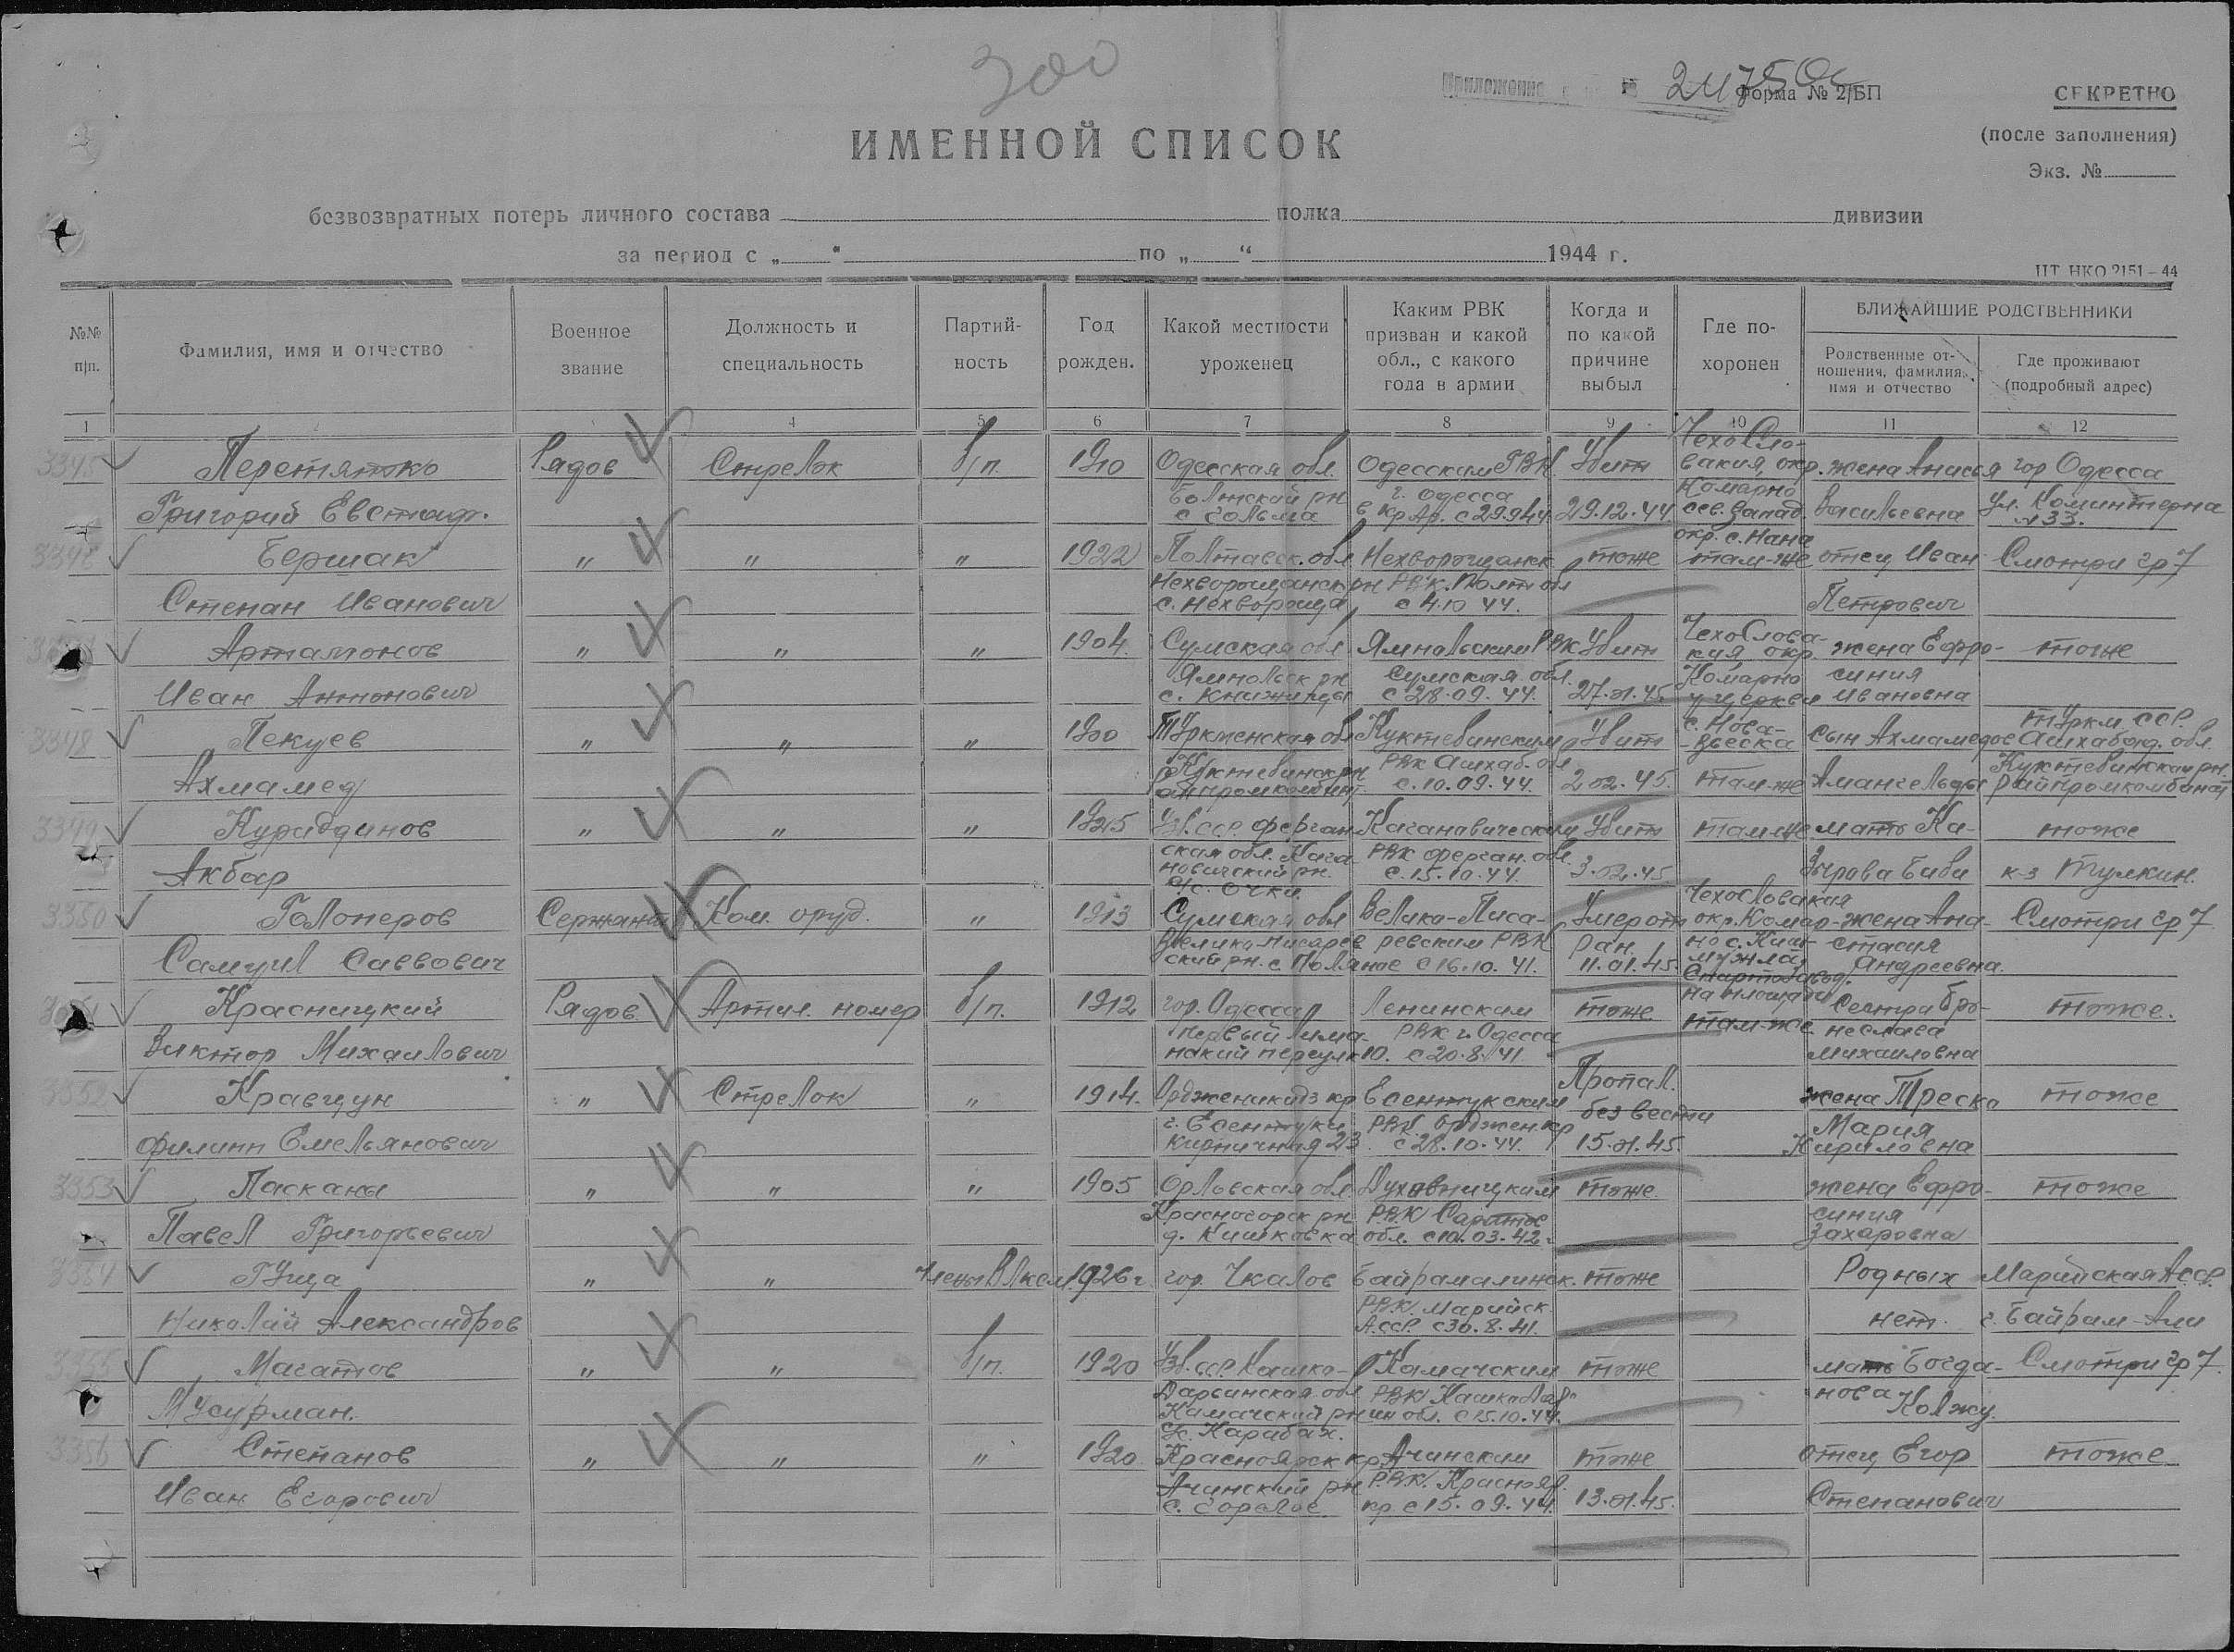 300
Приложение
Форма № 2/БП
СЕКРЕТНО
(после заполнения)
Экз. №
ИМЕННОЙ СПИСОК
безвозвратных потерь личного состава полка дивизии
за период с „ “ по „ “ 1944 г.
ЦТ НКО 2151–44
№№ п|п.
Фамилия, имя и отчество
Военное звание
Должность и специальность
Партий-
ность
Год рожден.
Какой местности уроженец
Каким РВК
призван и какой
обл., с какого
года в армии
Когда и
по какой
причине
выбыл
Где по-
хоронен
БЛИЖАЙШИЕ РОДСТВЕННИКИ
Родственные от-
ношения, фамилия,
имя и отчество
Где проживают
(подробный адрес)
1 4 5 6 7 8 9 10 11 12
3345 Перетятко Рядов Стрелок б/п. 1910 Одесская обл. Одесским ГВК Убит Чехосло-
вакия, окр. жена Анисья гор Одесса
Григорий Евстаф. с Гольма г. Одесса 29.12.44 Комарно сев. запад. Васильевна ул. Коминтерна
окр. с. Нана
Бершак „ „ „ 1922 Полтавск. обл Нехворощанск тоже там-же отец Иван Смотри гр 7
Степан Иванович Нехворощанск рн РВК. Полт обл Петрович
с. Нехвороща с 4.10 44.
Артамонов „ „ „ 1904. Сумская обл Ямпольским РВК Убит Чехослова-
кия окр. жена Ефро- тоже
Иван Антонович Ямпольск рн Сумская обл. Комарно синия
с. Княжицы с 28.09.44. 27.01.45. у церкви Ивановна
3348 Пекуев „ „ „ 1900 Туркменская обл Куктевинским Убит с. Нова-
сын Ахмамедов Туркм. ССР. Ашхабад. обл.
Ахмамед Куктевинск рн РВК Ашхаб. обл Куктевинский рн.
с. 10.09.44. 2.02.45. там-же Амангельды райпромкомбинат
3349 Курибдинов „ „ „ 1925 Узб. ССР. Ферган- Кагановическим Убит там-же мать Ка- тоже
Акбар ская обл. Кага- РВК Ферган. обл.
новичский рн. с. 15.10.44. 3.02.45 Биби к-з
3350 Голоперов Сержант Ком. оруд. „ 1913 Сумская обл Велико-Писа- Умер от Чехословакия
окр. Комар- жена Ана- Смотри гр 7
Самуил Саввович Велико-Писарев ревским РВК ран. но с. стасия
ский рн. с. Поляное с 16.10.41. 11.01.45. Андреевна.
на площади
Красницкий Рядов Артил. номер б/п. 1912 гор. Одесса Ленинским тоже там-же сестра Бро- тоже.
Виктор Михайлович Первый РВК г. Одесса неслава
переулк 10. с 20.8.41. Михаиловна
3352 Кравцун „ Стрелок „ 1914. Орджоникидз кр Есентукским Пропал.
без вести жена Треско тоже
Филипп Емельянович г. Есентуки РВК. Орджен. кр Мария
Кирпичная 23 с 28.10.44. 15.01.45. Кириловна
3353 Пасканы „ „ „ 1905 Орловская обл. Духовницким тоже жена Ефро- тоже
Павел Григорьевич Красногорск рн РВК Саратов синия
д. Кишковка обл. с 10.03.42. Захаровна
3354 Гуща „ „ Члены ВЛКСМ. 1926 г. гор. Чкалов Байрамалинск. тоже Родных Марийская АССР.
Николай Александров РВК. Марийск нет. г. Байрам-Али
АССР. с 30.8.41.
3355 Магатов „ „ б/п. 1920 Узб. ССР. Кашка- Камачским тоже мать Богда- Смотри гр 7.
Мусурман. Дарьинская обл РВК Кашкадар- нова Колжу.
Камачский рн ин обл. с 15.10.44.
с/с. Карабах.
3356 Степанов „ „ „ 1920 Красноярск кр Ачинским тоже отец Егор тоже
Иван Егорович Ачинский рн РВК. Краснояр. Степанович
с. Горелое. кр с 15.09.44. 13.01.45.